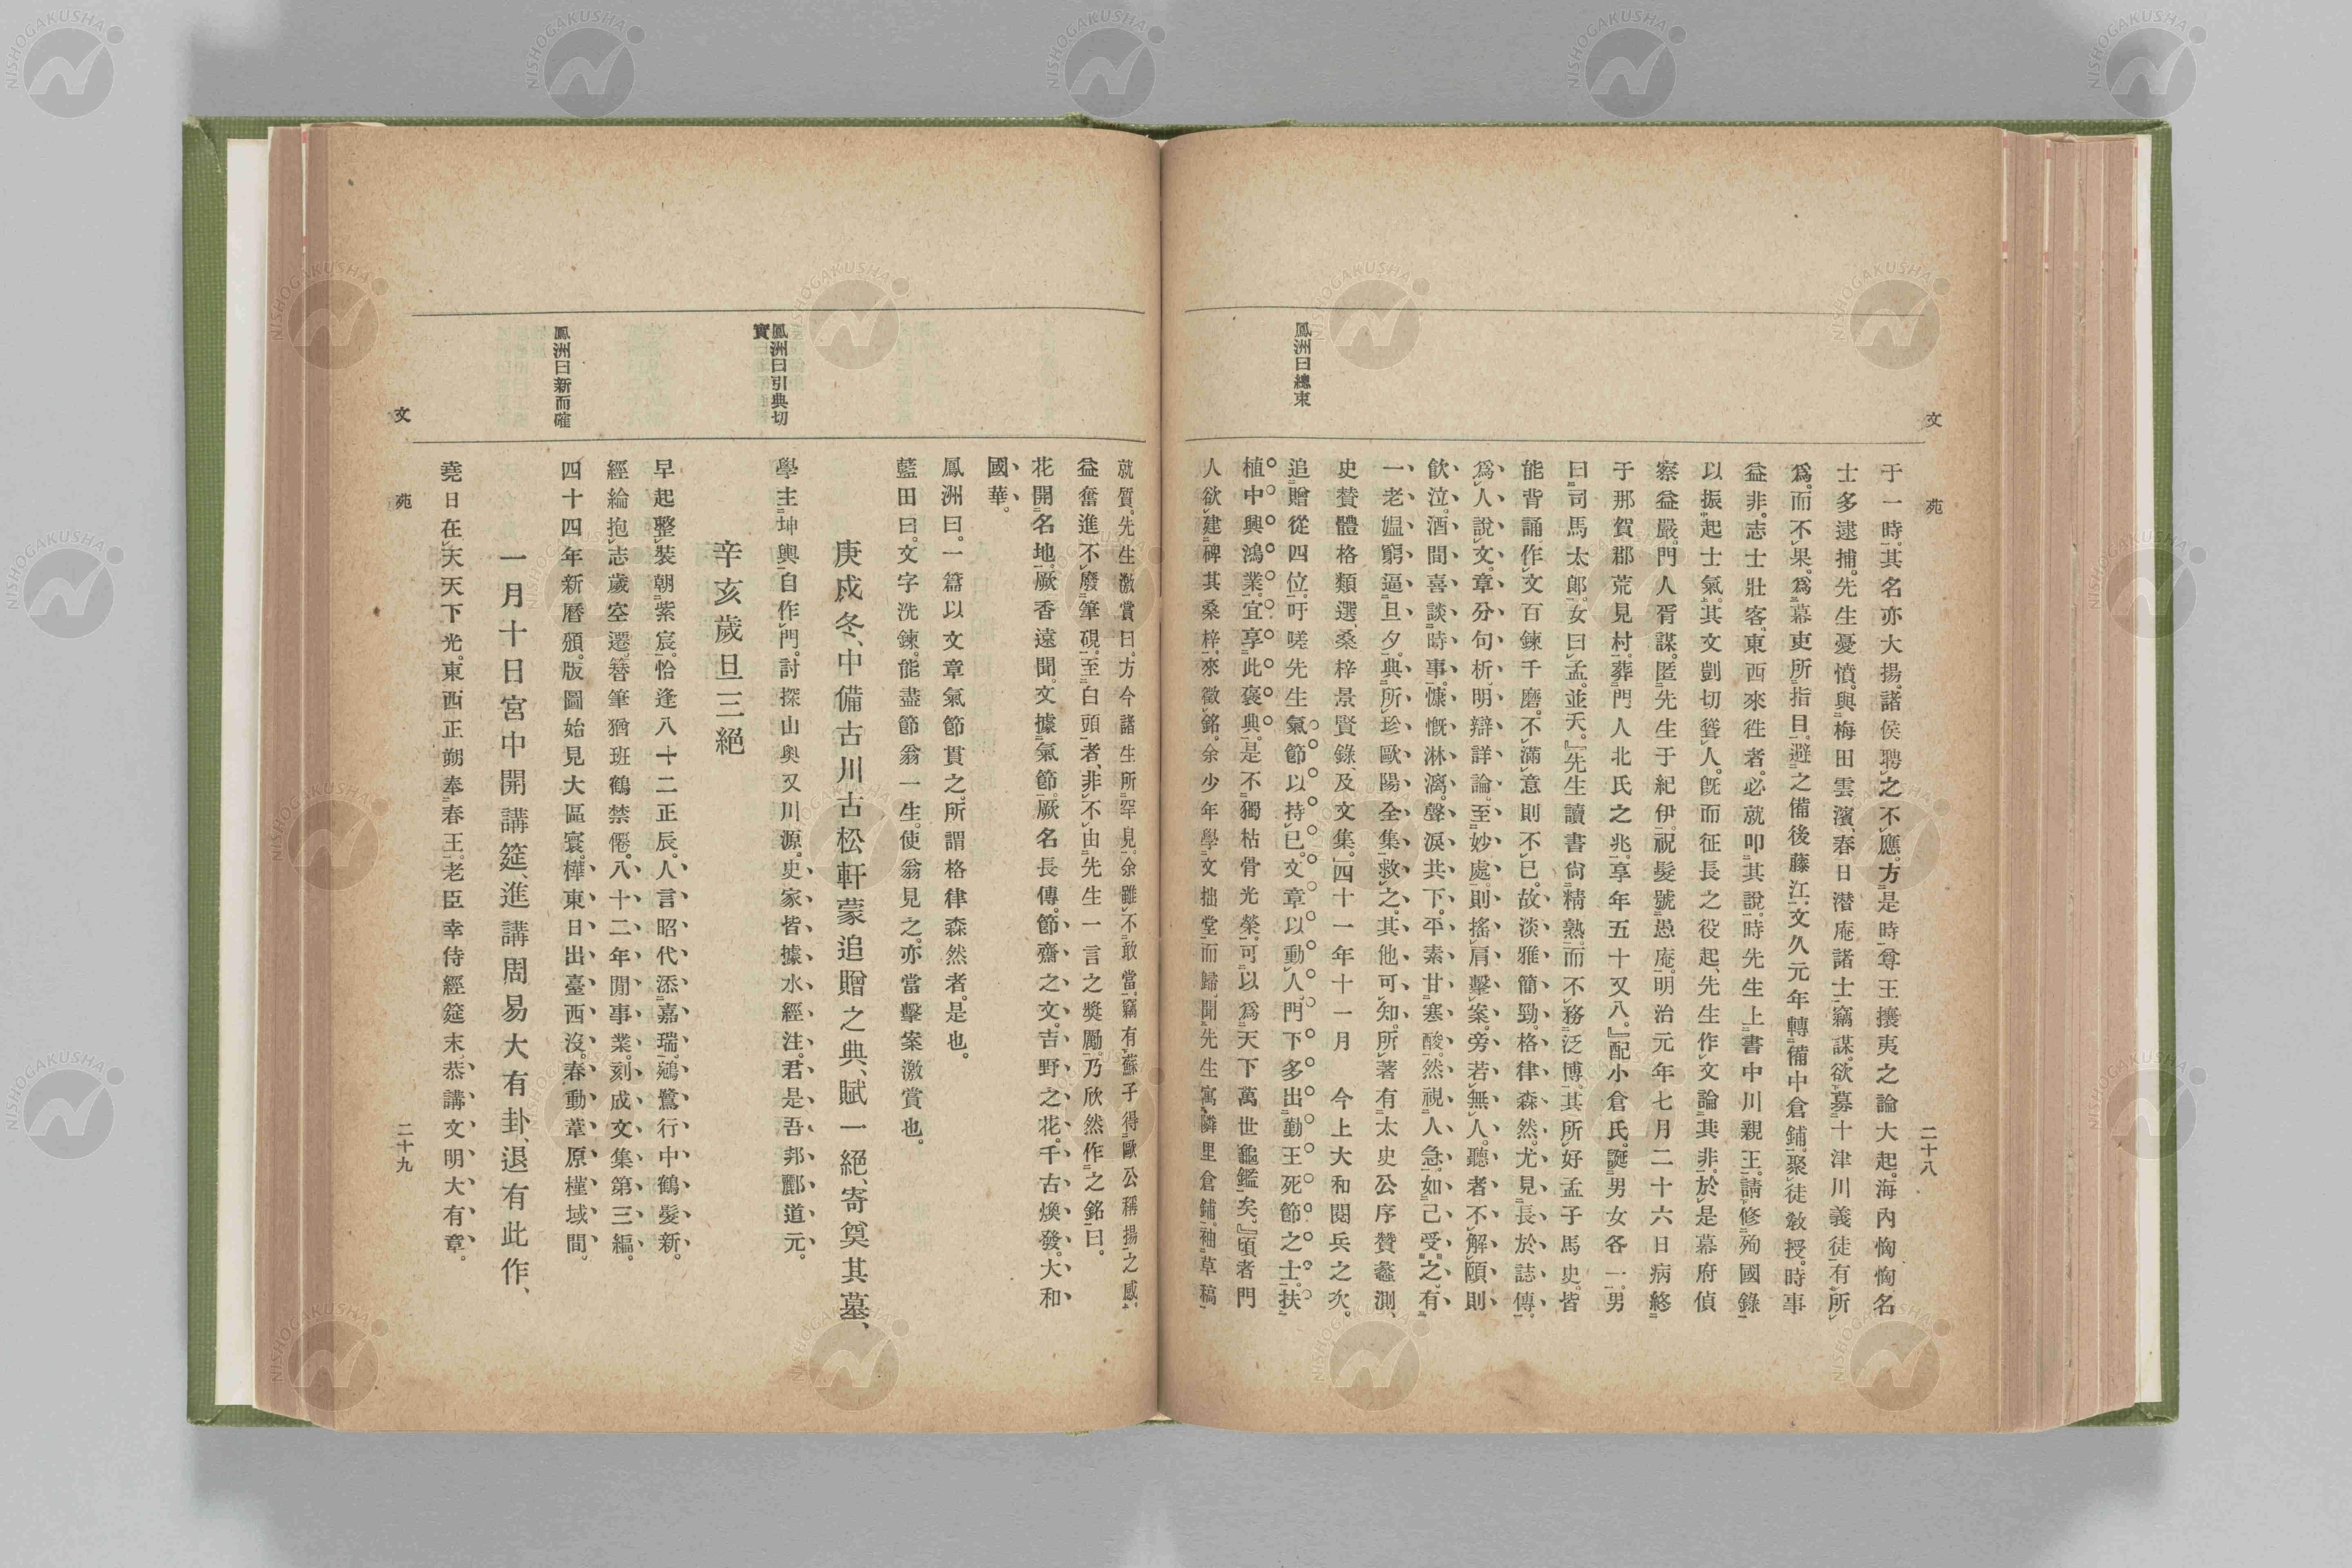 文 苑 二十八
鳳洲曰總束
于一時。其名亦大揚。諸侯聘之不應。方是時。尊王攘夷之論大起。海內恟恟名
士多逮捕。先生憂憤。與梅田雲濱、春日潛庵諸士竊謀。欲募十津川義徒有所
爲。而不果。爲幕吏所指目。避之備後藤江。文久元年轉備中倉鋪。聚徒敎授。時事
益非。志士壯客。東西來往者。必就叩其說。時先生上書中川親王。請修殉國錄
以振起士氣。其文剴切聳人。既而征長之役起、先生作文論其非。於是幕府偵
察益嚴。門人胥謀。匿先生于紀伊。祝髮號愚庵。明治元年七月二十六日病終
于那賀郡荒見村。葬門人北氏之兆。享年五十又八。』配小倉氏。誕男女各一。男
曰司馬太郞。女曰孟。並夭。』先生讀書尙精熟。而不務泛博。其所好孟子馬史。皆
能背誦。作文百鍊千磨。不滿意則不已。故淡雅簡勁。格律森然。尤見長於誌傳。
爲人說文。章分句析。明辯詳論。至妙處。則搖肩擊案。旁若無人。聽者不解頤則
飮泣。酒間喜談時事。慷慨淋漓。聲淚共下。平素甘寒酸。然視人急。如己受之。有
一老媼窮逼旦夕。典所珍歐陽全集。救之。其他可知。所著有太史公序贊蠡測、
史贊體格類選、桑梓景賢錄、及文集。』四十一年十一月 今上大和閱兵之次。
追贈從四位。吁嗟先生氣節以持已。文章以動人。門下多出勤王死節之士。扶
植中興鴻業。宜享此褒典。是不獨枯骨光榮。可以爲天下萬世龜鑑矣。』頃者門
人欲建碑其桑梓。來徵銘。余少年學文拙堂而歸。聞先生寓隣里倉鋪。袖草稿
就質。先生激賞曰。方今諸生所罕見。余雖不敢當。竊有蘇子得歐公稱揚之感。
益奮進不廢筆硯。至白頭者、非不由先生一言之獎勵。乃欣然作之銘曰。
花開名地。厥香遠聞。文據氣節。厥名長傳。節齋之文。吉野之花。千古煥發。大和
國華。
鳳洲曰。一篇以文章氣節貫之。所謂格律森然者。是也。
藍田曰。文字洗鍊。能盡節翁一生。使翁見之。亦當擊案激賞也。
庚戌冬、中備古川古松軒蒙追贈之典、賦一絕、寄奠其墓、
鳳洲曰引典切
實
學主坤輿自作門。討探山奧又川源。史家皆據水經注。君是吾邦酈道元。
辛亥歲旦三絕
早起整裝朝紫宸。恰逢八十二正辰。人言昭代添嘉瑞。鵷鷺行中鶴髮新。
經綸抱志歲空遷。簪筆猶班鶴禁僊。八十二年閒事業。刻成文集第三編。
鳳洲曰新而確
四十四年新曆頒。版圖始見大區寰。樺東日出臺西沒。春動葦原槿域間。
一月十日宮中開講筵、進講周易大有卦、退有此作、
堯日在天天下光。東西正朔奉春王。老臣幸侍經筵末。恭講文明大有章。
文 苑 二十九
NISHOGAKUSHA